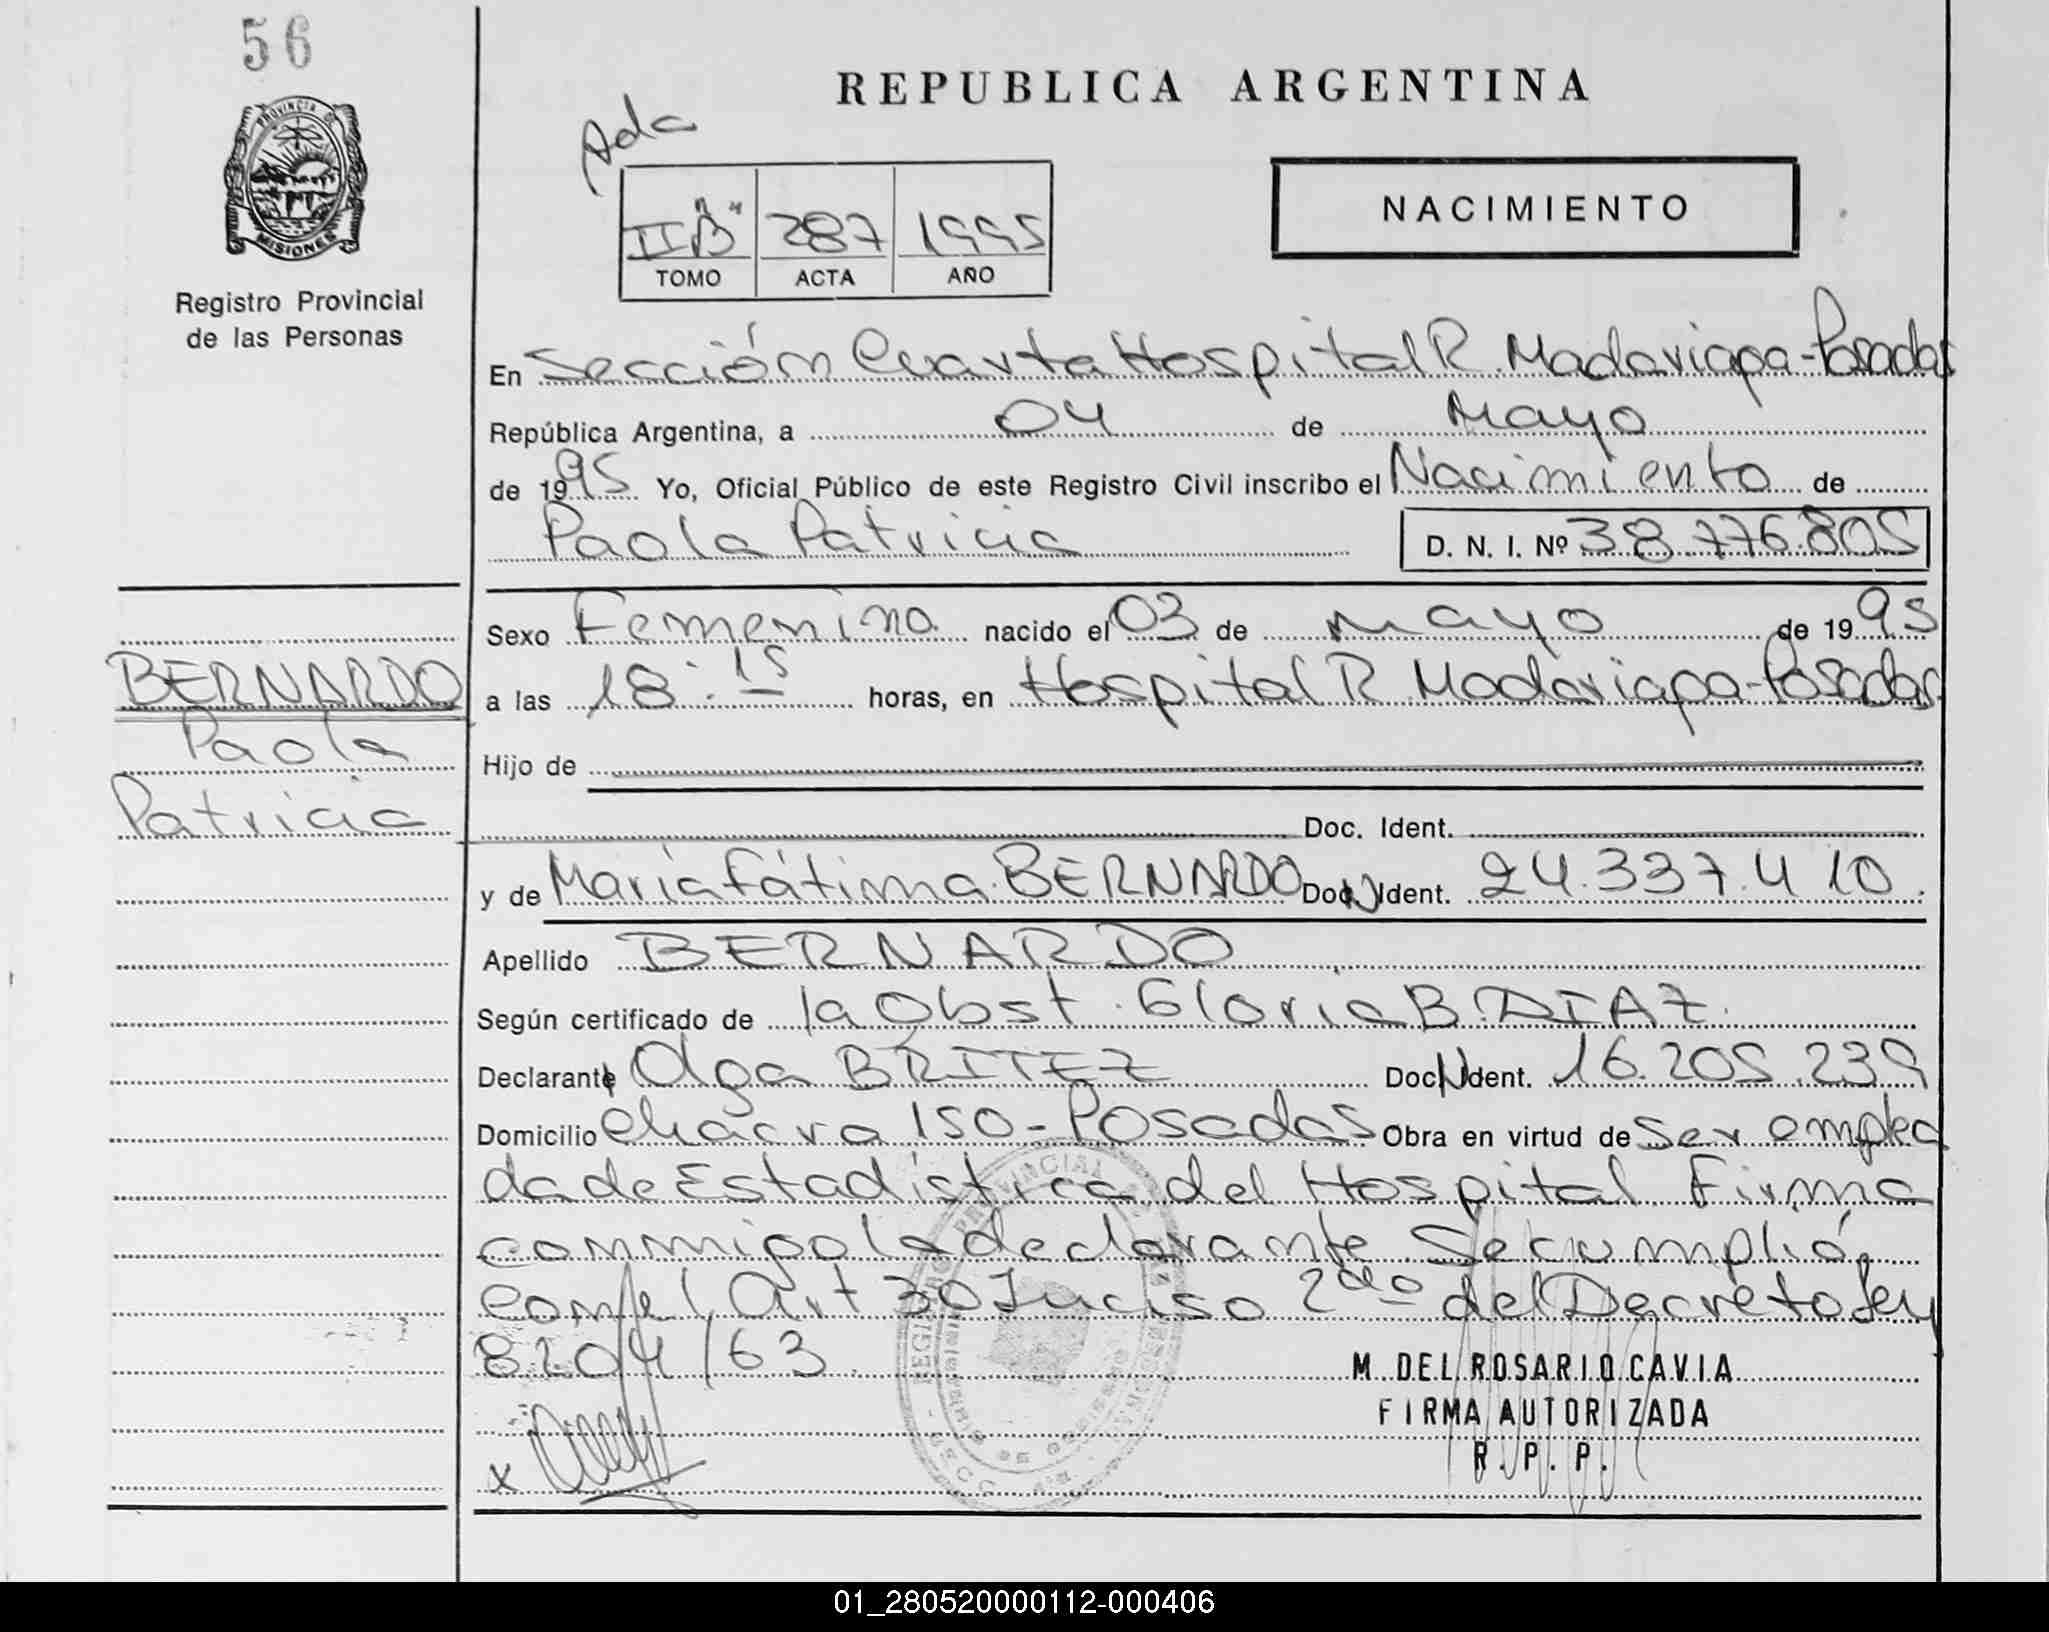 56
REPUBLICA ARGENTINA
Ada
PROVINCIA DE
MISIONES
Registro Provincial
de las Personas
II "B" 287 1995
TOMO ACTA AÑO
NACIMIENTO
En Sección Cuarta Hospital R. Madariaga-Posadas
República Argentina, a 04 de Mayo
de 1995 Yo, Oficial Público de este Registro Civil inscribo el Nacimiento de
Paola Patricia D. N. I. Nº 38.776.805
Sexo Femenino nacido el 03 de Mayo de 1995
a las 18:15 horas, en Hospital R. Madariaga-Posadas
BERNARDO
Paola
Patricia
Hijo de
Doc. Ident.
y de María Fátima BERNARDO Doc. N Ident. 24.337.410.
Apellido BERNARDO
Según certificado de la Obst. Gloria B. DIAZ.
Declarante Olga BRITEZ Doc. N Ident. 16.205.239
Domicilio Chacra 150-Posadas Obra en virtud de ser emplea
da de Estadística del Hospital Firma
conmigo la declarante. Se cumplió
con el Art 30 Inciso 2do del Decreto Ley
8204/63.
M. DEL ROSARIO CAVIA
FIRMA AUTORIZADA
R. P. P.
x
01_280520000112-000406